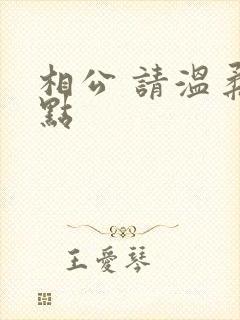 相公 請溫柔
點
王愛琴